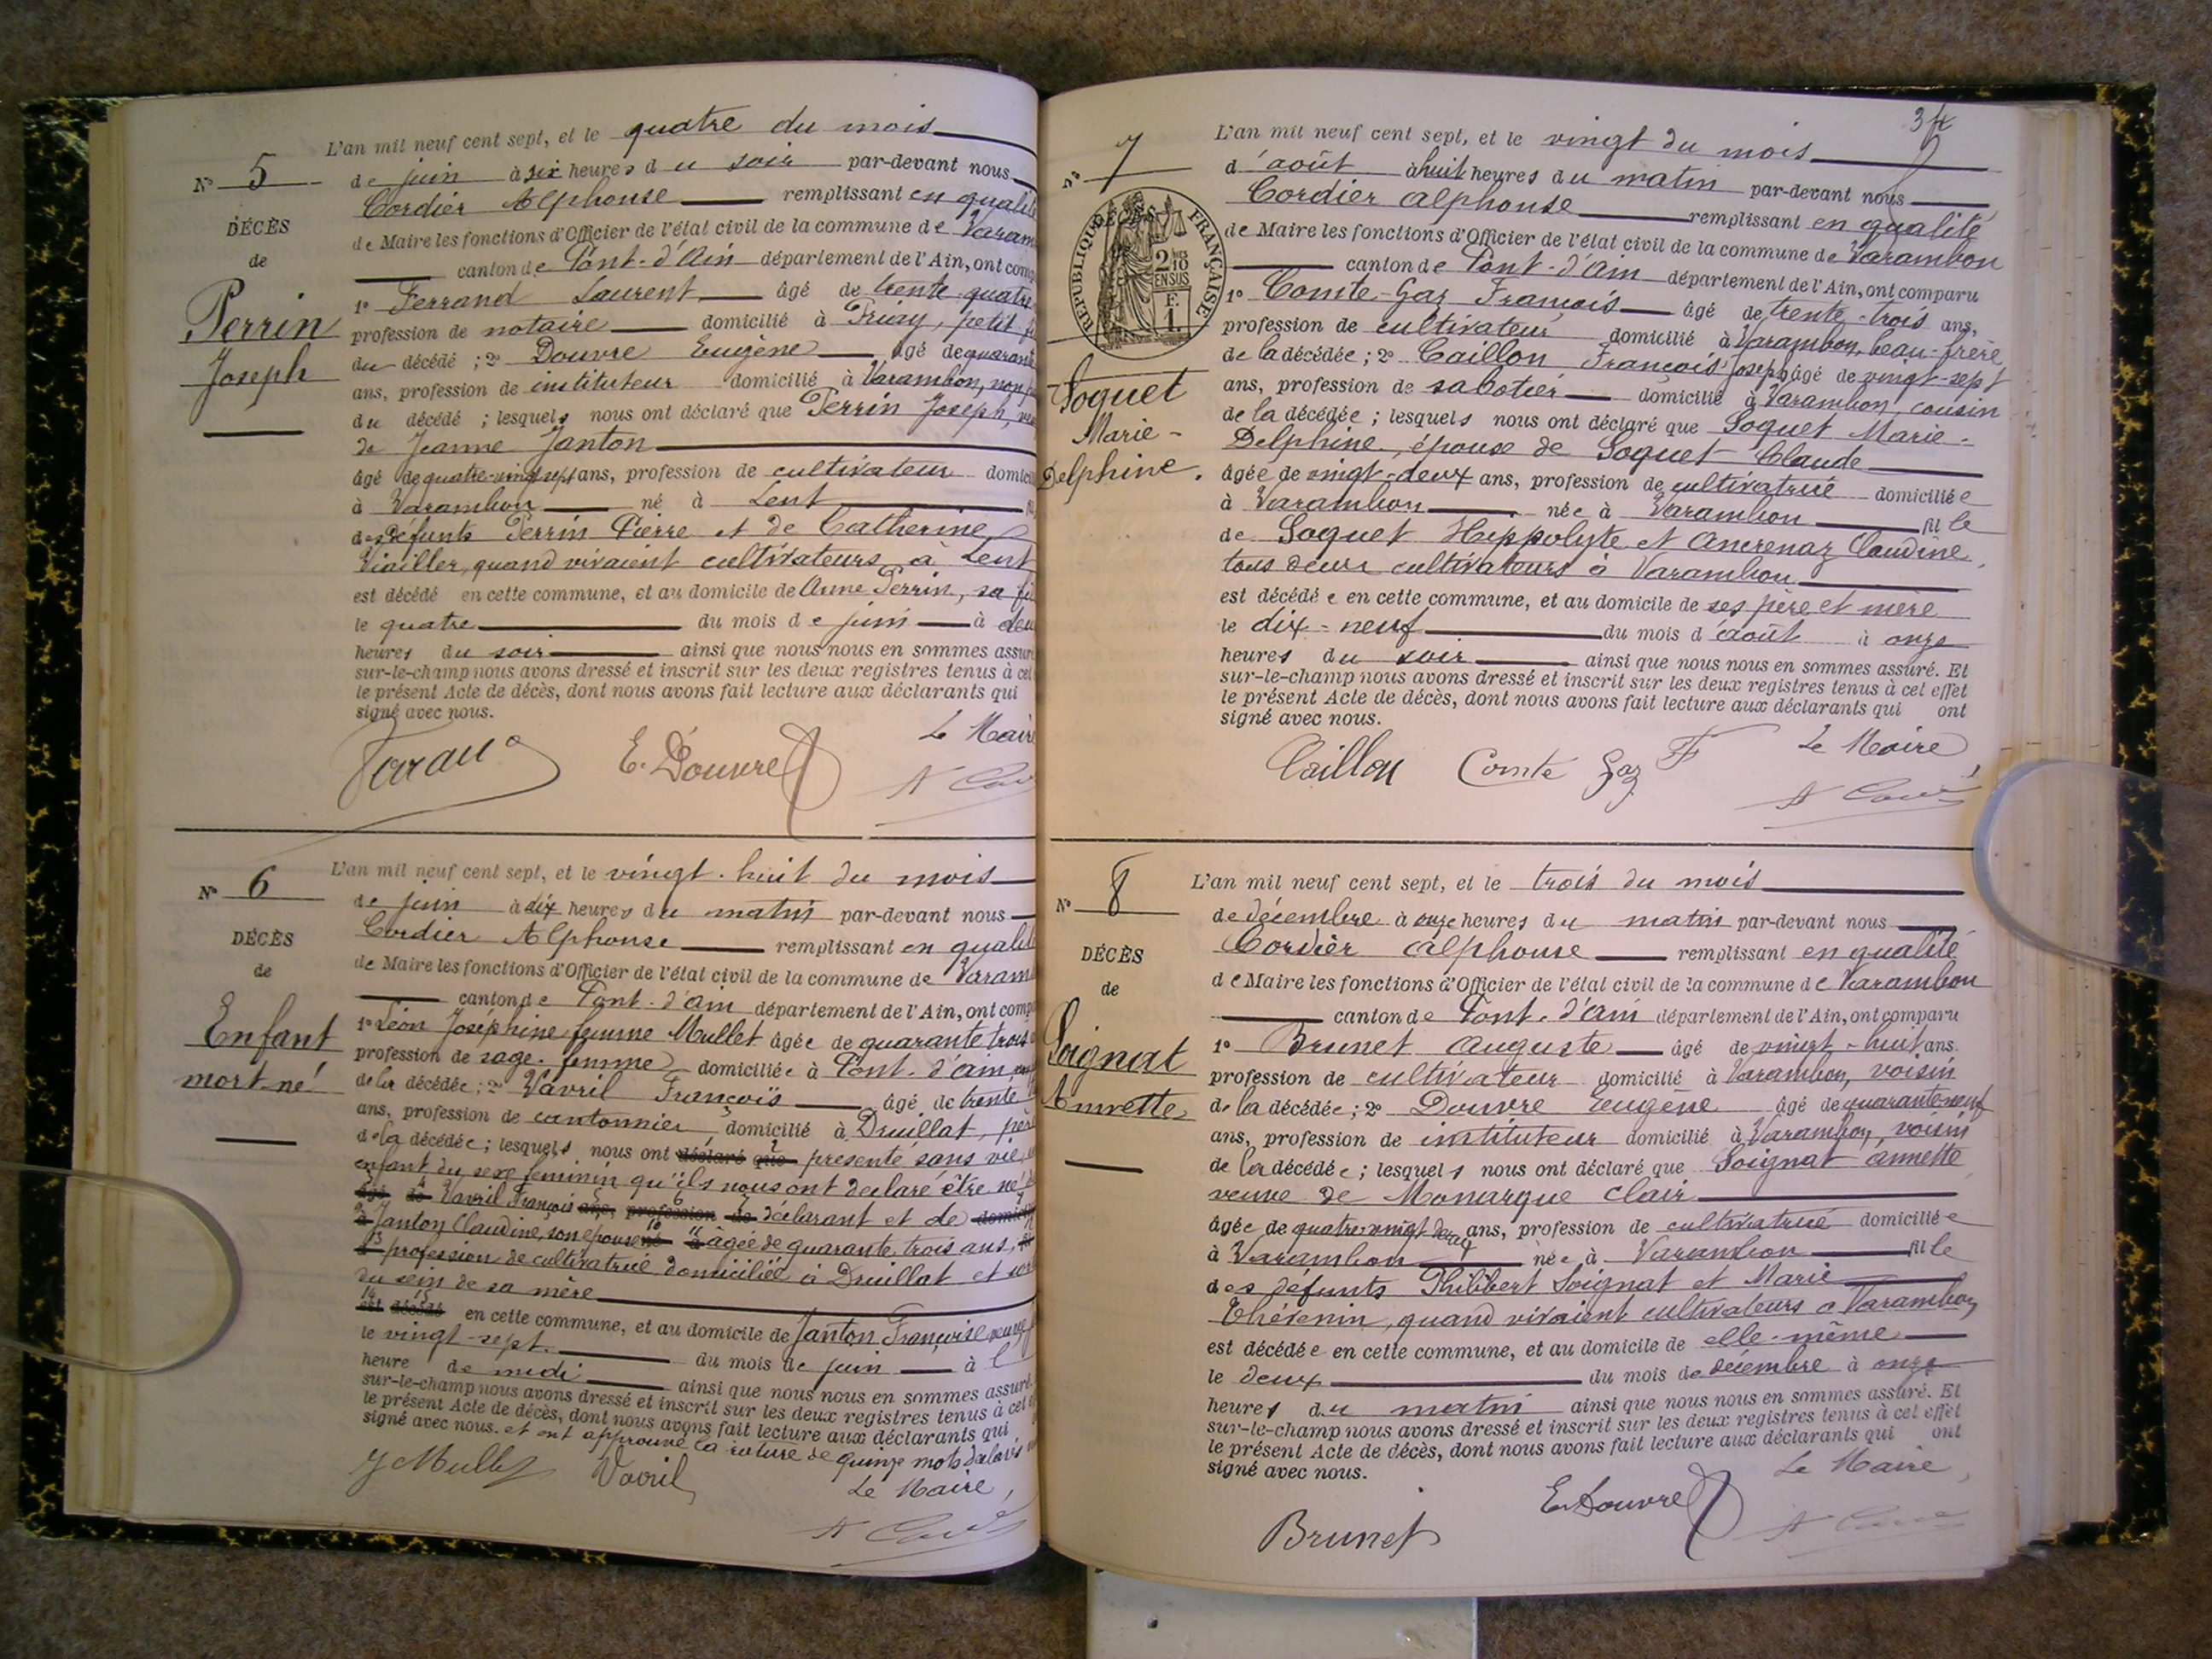 L'an mil neuf cent sept, et le quatre du mois
N° 5
de juin à six heures du soir par-devant nous
Cordier Alphonse remplissant en qualité
DÉCÈS
de Maire les fonctions d'Officier de l'état civil de la commune de Varam
de
canton de Pont-d'Ain département de l'Ain, ont comp
Perrin
Joseph
1° Ferrand Laurent âgé de trente quatre
profession de notaire domicilié à Priay, petit
du décédé ; 2° Douvre Eugène âgé de quarante
ans, profession de instituteur domicilié à Varambon, non
du décédé ; lesquels nous ont déclaré que Perrin Joseph,
de Jeanne Janton
âgé de quatre-vingt sept ans, profession de cultivateur domici
à Varambon né à Lent
des défunts Perrin Pierre et de Catherine
Viailler, quand vivaient cultivateurs à Lent
est décédé en cette commune, et au domicile de Anne Perrin, sa
le quatre du mois de juin à
heures du soir ainsi que nous nous en sommes assuré
sur-le-champ nous avons dressé et inscrit sur les deux registres tenus à cet
le présent Acte de décès, dont nous avons fait lecture aux déclarants qui
signé avec nous.
Le Maire
Ferrand E. Douvre
L'an mil neuf cent sept, et le vingt-huit du mois
N° 6
de juin à dix heures du matin par-devant nous
Cordier Alphonse remplissant en qualité
DÉCÈS
de Maire les fonctions d'Officier de l'état civil de la commune de Varam
de
canton de Pont-d'ain département de l'Ain, ont comp
Enfant
mort né
1° Léon Joséphine femme Mullet âgée de quarante trois
profession de sage-femme domiciliée à Pont-d'ain
de la décédée ; 2° Vavril François âgé de trente
ans, profession de cantonnier domicilié à Druillat, père
de la décédée ; lesquels nous ont déclaré que présenté sans vie
enfant du sexe féminin qu'ils nous ont déclaré être né
âgé de Vavril François ans, profession de déclarant et de
à Janton Claudine, son épouse né à âgée de quarante trois ans,
profession de cultivatrice domiciliée à Druillat et
du sein de sa mère
est décédé en cette commune, et au domicile de Janton Françoise
le vingt-sept du mois de juin à
heure de midi ainsi que nous nous en sommes assuré.
sur-le-champ nous avons dressé et inscrit sur les deux registres tenus à cet
le présent Acte de décès, dont nous avons fait lecture aux déclarants qui
signé avec nous. et ont approuvé la rature de quinze mots
J Mullet Vavril
Le Maire,
L'an mil neuf cent sept, et le vingt du mois
N° 7
d'août à huit heures du matin par-devant nous
Cordier Alphonse remplissant en qualité
RÉPUBLIQUE FRANÇAISE
DÉCÈS
2/10 EN SUS
F. 1.
de Maire les fonctions d'Officier de l'état civil de la commune de Varambon
canton de Pont-d'Ain département de l'Ain, ont comparu
1° Comte-Gaz François âgé de trente-trois ans,
profession de cultivateur domicilié à Varambon, beau-frère
de la décédée ; 2° Caillon François Joseph âgé de vingt-sept
Soquet
Marie-
Delphine.
ans, profession de sabotier domicilié à Varambon, cousin
de la décédée ; lesquels nous ont déclaré que Soquet Marie-
Delphine, épouse de Soquet Claude
âgée de vingt-deux ans, profession de cultivatrice domiciliée
à Varambon née à Varambon fille
de Soquet Hippolyte et Ancrenaz Claudine,
tous deux cultivateurs à Varambon
est décédée en cette commune, et au domicile de ses père et mère
le dix-neuf du mois d'août à onze
heures du soir ainsi que nous nous en sommes assuré. Et
sur-le-champ nous avons dressé et inscrit sur les deux registres tenus à cet effet
le présent Acte de décès, dont nous avons fait lecture aux déclarants qui ont
signé avec nous.
Le Maire
Caillon Comte Gaz
L'an mil neuf cent sept, et le trois du mois
N° 8
de décembre à onze heures du matin par-devant nous
Cordier Alphonse remplissant en qualité
DÉCÈS
de Maire les fonctions d'Officier de l'état civil de la commune de Varambon
de
canton de Pont-d'ain département de l'Ain, ont comparu
Soignat
Annette
1° Brunet Auguste âgé de vingt-huit ans.
profession de cultivateur domicilié à Varambon, voisin
de la décédée ; 2° Douvre Eugène âgé de quarante neuf
ans, profession de instituteur domicilié à Varambon, voisin
de la décédée ; lesquels nous ont déclaré que Soignat Annette
veuve de Monarque Clair
âgée de quatre-vingt deux ans, profession de cultivatrice domiciliée
à Varambon née à Varambon fille
des défunts Philibert Soignat et Marie
Thévenin, quand vivaient cultivateurs à Varambon
est décédée en cette commune, et au domicile de elle-même
le deux du mois de décembre à onze
heures du matin ainsi que nous nous en sommes assuré. Et
sur-le-champ nous avons dressé et inscrit sur les deux registres tenus à cet effet
le présent Acte de décès, dont nous avons fait lecture aux déclarants qui ont
signé avec nous.
Le Maire,
Brunet E. Douvre